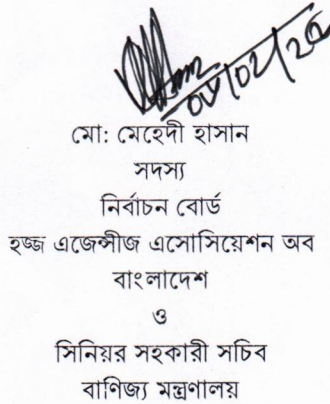 ০৮/০২/২৫
মো: মেহেদী হাসান
সদস্য
নির্বাচন বোর্ড
হজ্জ এজেন্সীজ এসোসিয়েশন অব
বাংলাদেশ
ও
সিনিয়র সহকারী সচিব
বাণিজ্য মন্ত্রণালয়